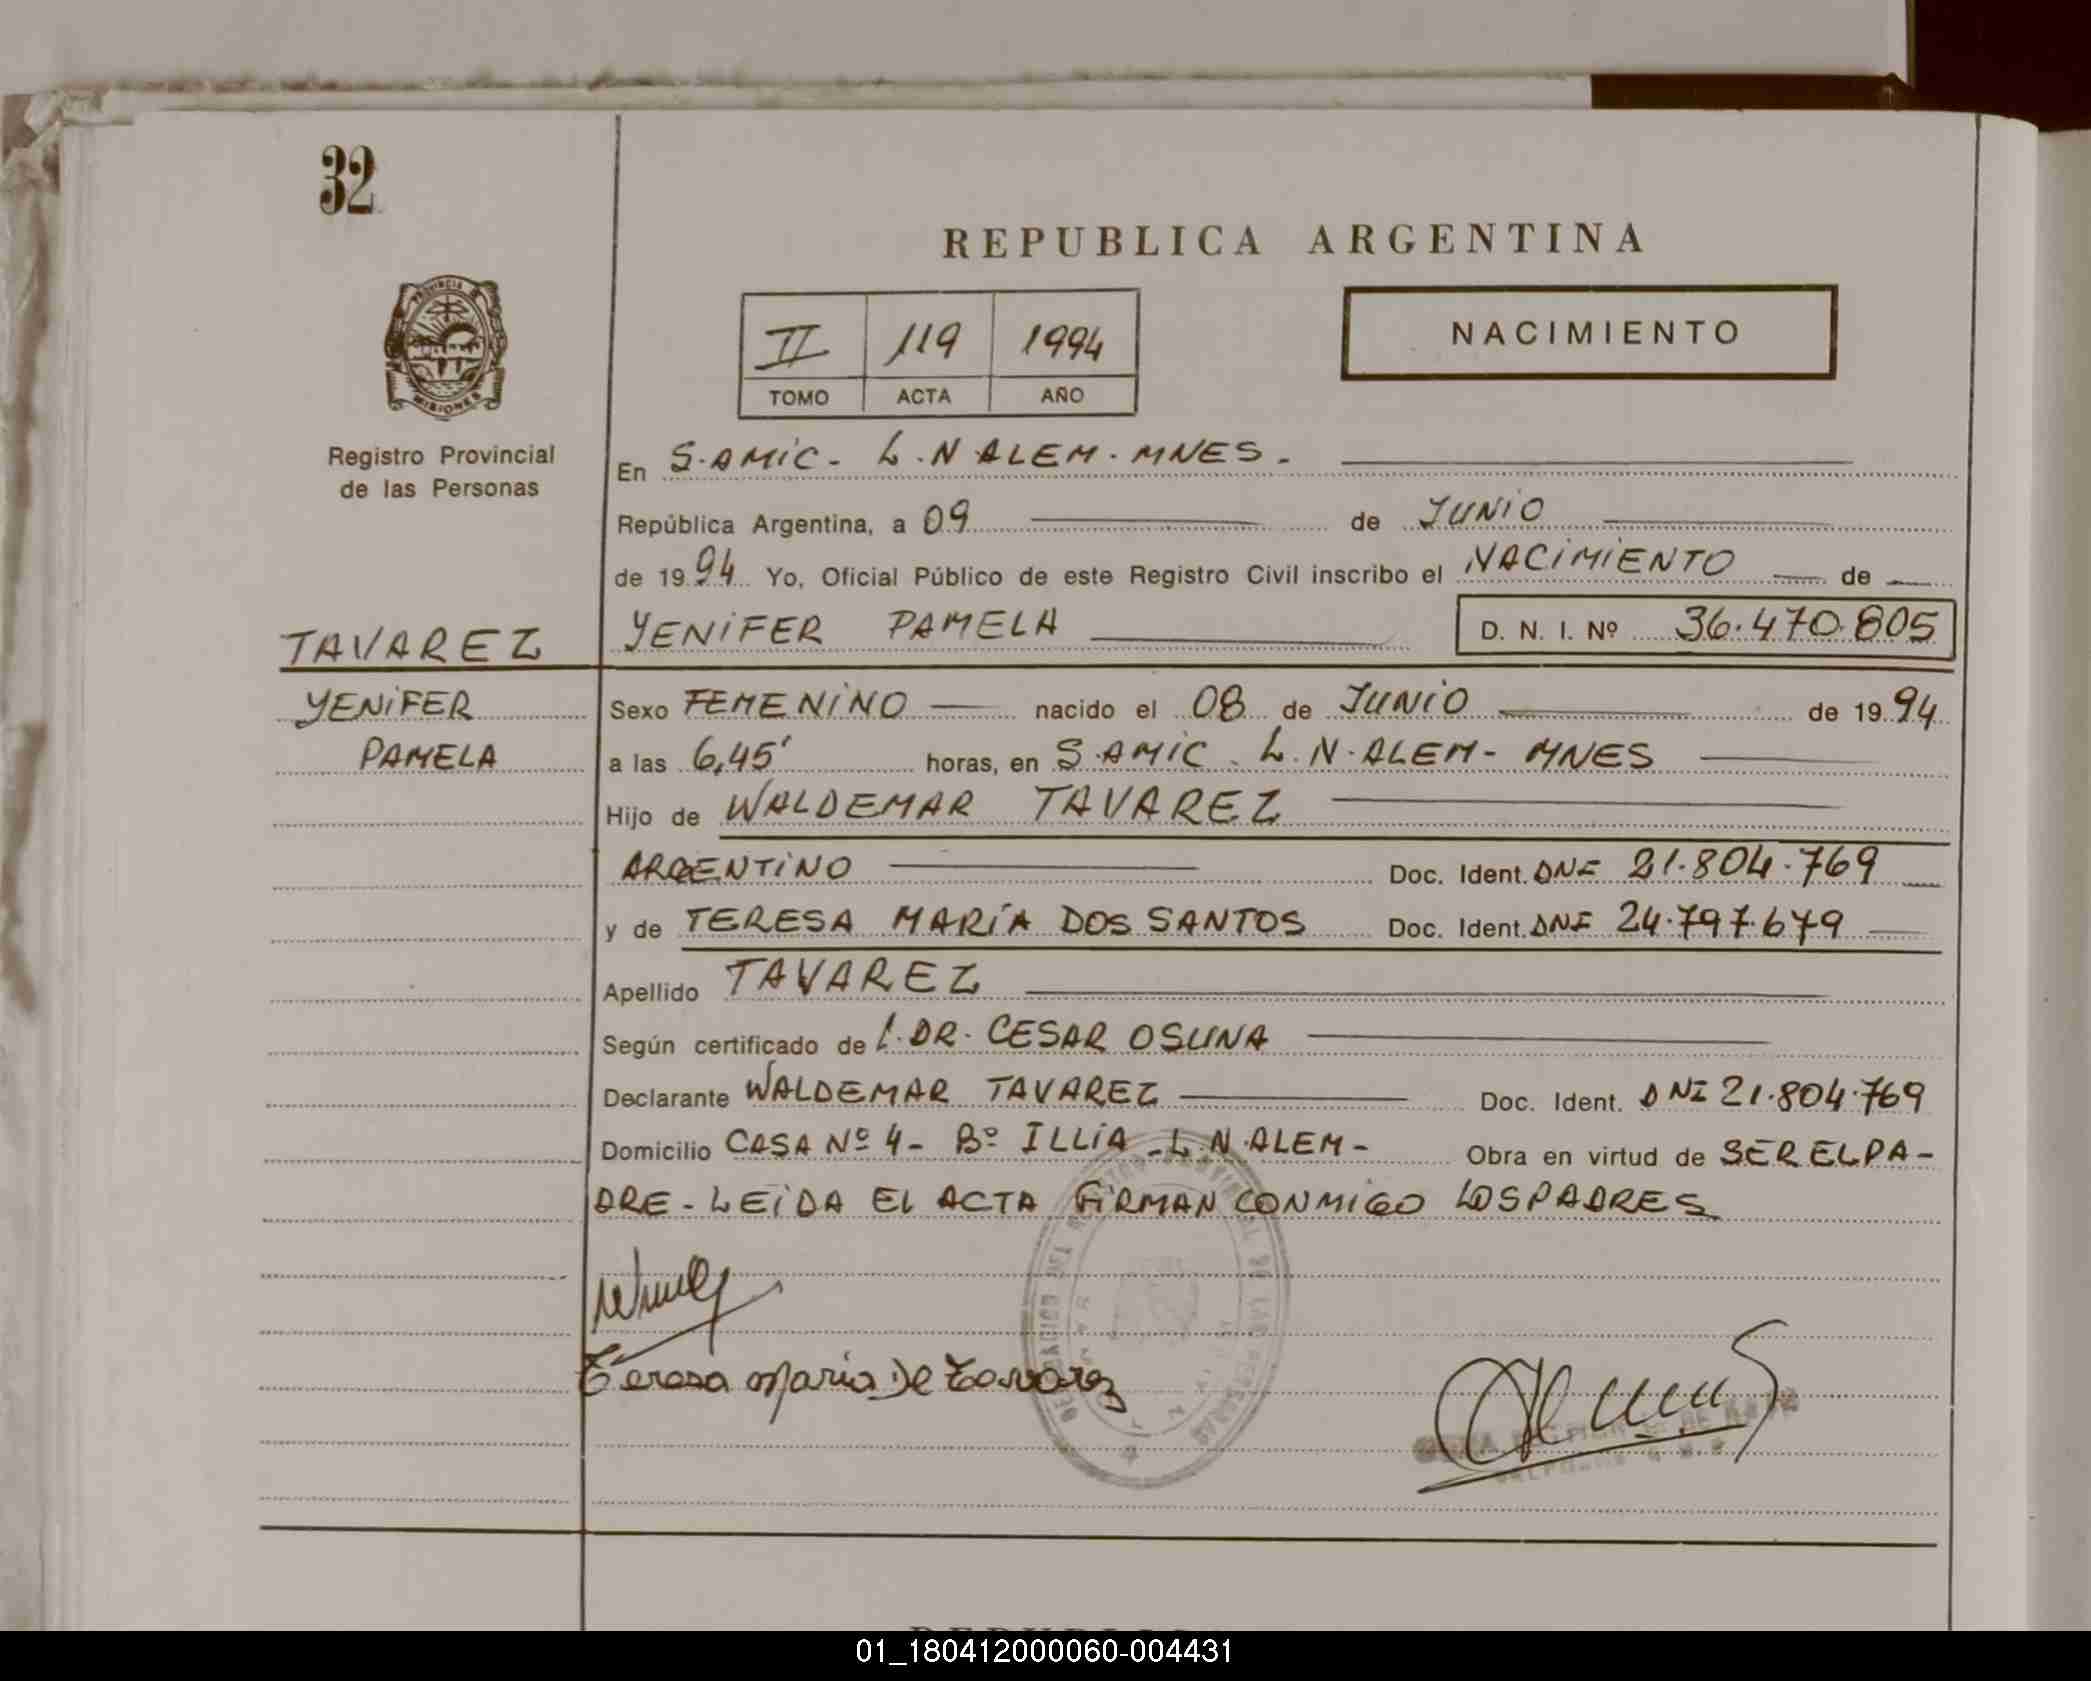 32
REPUBLICA ARGENTINA
PROVINCIA DE
MISIONES
II 119 1994
TOMO ACTA AÑO
NACIMIENTO
Registro Provincial
de las Personas
En S. AMIC - L. N. ALEM - MNES -
República Argentina, a 09 de JUNIO
de 1994 Yo, Oficial Público de este Registro Civil inscribo el NACIMIENTO de
TAVAREZ
YENIFER PAMELA D. N. I. Nº 36.470.805
YENIFER
PAMELA
Sexo FEMENINO nacido el 08 de JUNIO de 1994
a las 6,45' horas, en S. AMIC - L. N. ALEM - MNES
Hijo de WALDEMAR TAVAREZ
ARGENTINO Doc. Ident. DNI 21.804.769
y de TERESA MARÍA DOS SANTOS Doc. Ident. DNI 24.797.679
Apellido TAVAREZ
Según certificado de L. DR. CESAR OSUNA
Declarante WALDEMAR TAVAREZ Doc. Ident. DNI 21.804.769
Domicilio CASA Nº 4 - Bº ILLIA - L. N. ALEM - Obra en virtud de SER EL PA-
DRE - LEIDA EL ACTA FIRMAN CONMIGO LOS PADRES
Teresa Maria De Tavarez
01_180412000060-004431